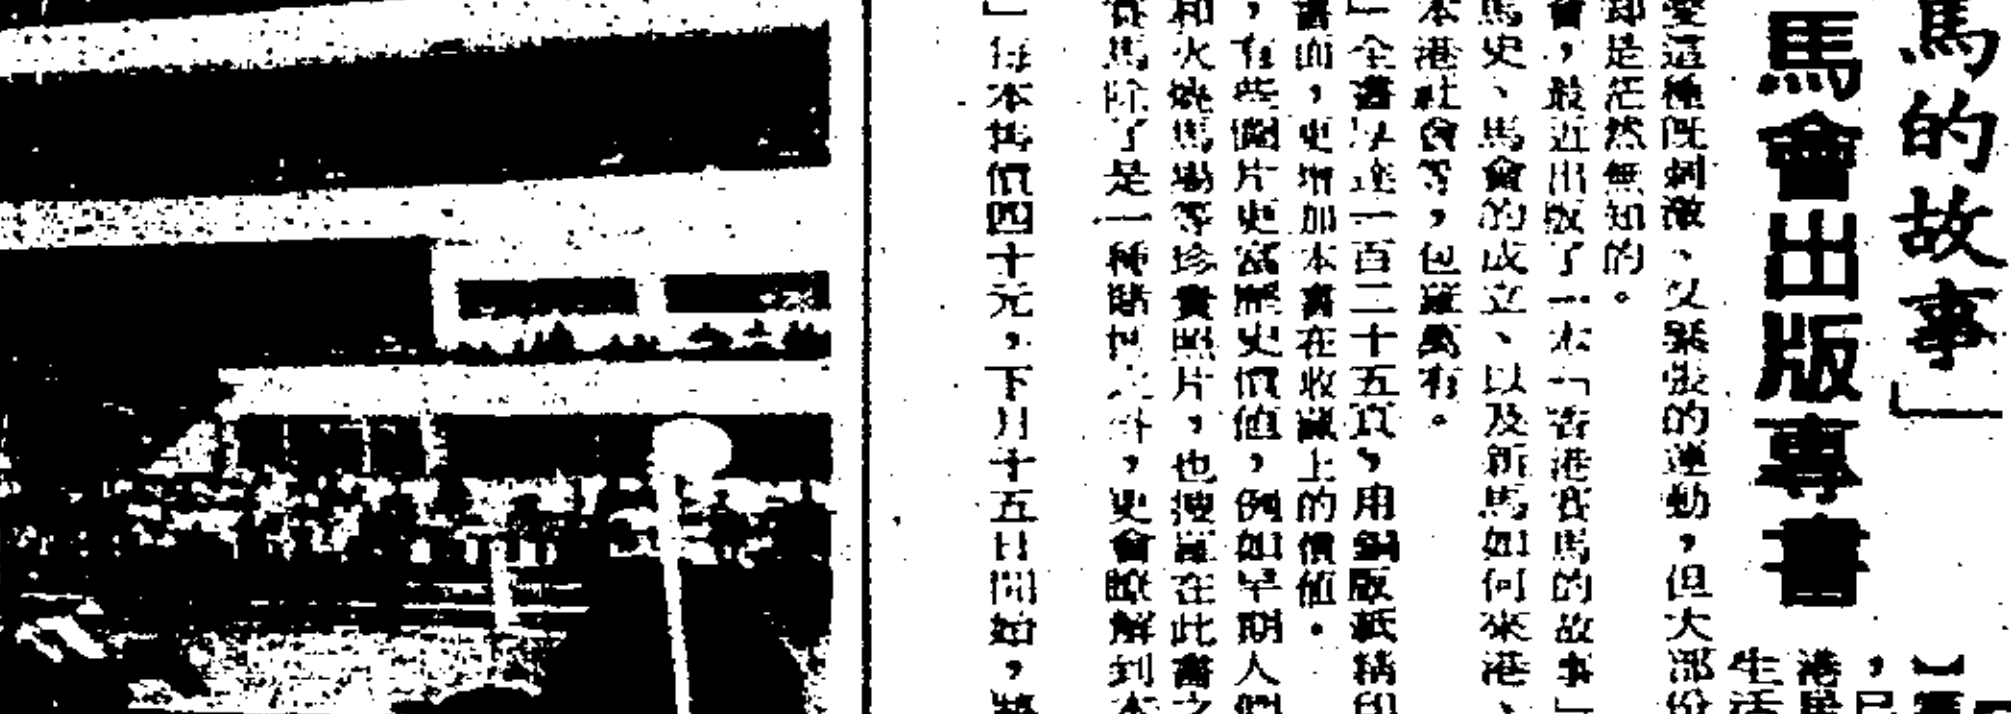 馬的故事」
馬會出版專書
】
，
港
生活
愛這種既刺激、又緊張的運動，但大部份
却是茫然無知的。
會，最近出版了一本「香港賽馬的故事」
馬史、馬會的成立、以及新馬如何來港、
本港社會等，包羅萬有。
」全書厚達一百二十五頁，用銅版紙精印
書面，更增加本書在收藏上的價值。
，有些圖片更富歷史價值，例如早期人們
和火燒馬場等珍貴照片，也搜羅在此書之
賽馬除了是一種賭博之外，更會瞭解到本
」每本售價四十元，下月十五日開始，將